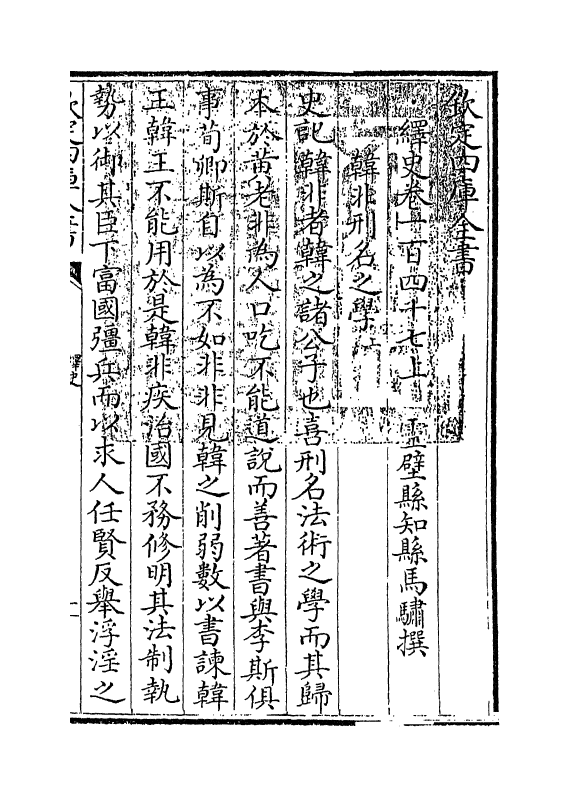 欽定四庫全書
繹史卷一百四十七上　靈壁縣知縣馬驌撰
韓非刑名之學
史記韓非者韓之諸公子也喜刑名法術之學而其歸
本於黄老非為人口吃不能道說而善著書與李斯俱
事荀卿斯自以為不如非非見韓之削弱數以書諫韓
王韓王不能用於是韓非疾治國不務修明其法制執
勢以御其臣下富國彊兵而以求人任賢反舉浮淫之
欽定四庫全書
繹史